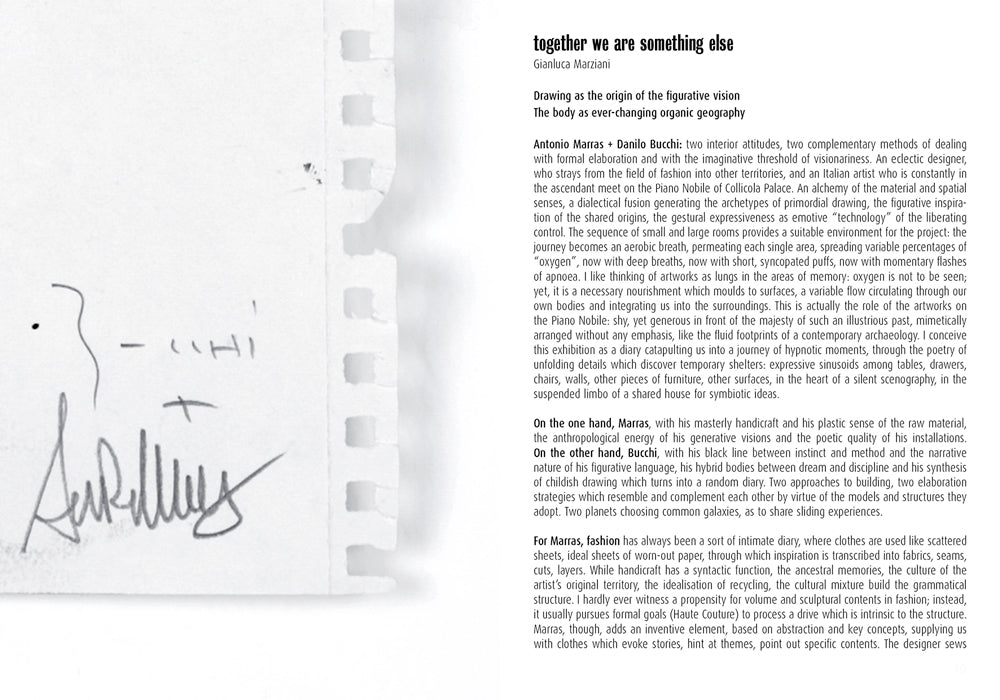 together we are something else
Gianluca Marziani
Drawing as the origin of the figurative vision
The body as ever-changing organic geography
Antonio Marras + Danilo Bucchi: two interior attitudes, two complementary methods of dealing
with formal elaboration and with the imaginative threshold of visionariness. An eclectic designer,
who strays from the field of fashion into other territories, and an Italian artist who is constantly in
the ascendant meet on the Piano Nobile of Collicola Palace. An alchemy of the material and spatial
senses, a dialectical fusion generating the archetypes of primordial drawing, the figurative inspira-
tion of the shared origins, the gestural expressiveness as emotive “technology” of the liberating
control. The sequence of small and large rooms provides a suitable environment for the project: the
journey becomes an aerobic breath, permeating each single area, spreading variable percentages of
“oxygen”, now with deep breaths, now with short, syncopated puffs, now with momentary flashes
of apnoea. I like thinking of artworks as lungs in the areas of memory: oxygen is not to be seen;
yet, it is a necessary nourishment which moulds to surfaces, a variable flow circulating through our
own bodies and integrating us into the surroundings. This is actually the role of the artworks on
the Piano Nobile: shy, yet generous in front of the majesty of such an illustrious past, mimetically
arranged without any emphasis, like the fluid footprints of a contemporary archaeology. I conceive
this exhibition as a diary catapulting us into a journey of hypnotic moments, through the poetry of
unfolding details which discover temporary shelters: expressive sinusoids among tables, drawers,
chairs, walls, other pieces of furniture, other surfaces, in the heart of a silent scenography, in the
suspended limbo of a shared house for symbiotic ideas.
On the one hand, Marras, with his masterly handicraft and his plastic sense of the raw material,
the anthropological energy of his generative visions and the poetic quality of his installations.
On the other hand, Bucchi, with his black line between instinct and method and the narrative
nature of his figurative language, his hybrid bodies between dream and discipline and his synthesis
of childish drawing which turns into a random diary. Two approaches to building, two elaboration
strategies which resemble and complement each other by virtue of the models and structures they
adopt. Two planets choosing common galaxies, as to share sliding experiences.
For Marras, fashion has always been a sort of intimate diary, where clothes are used like scattered
sheets, ideal sheets of worn-out paper, through which inspiration is transcribed into fabrics, seams,
cuts, layers. While handicraft has a syntactic function, the ancestral memories, the culture of the
artist’s original territory, the idealisation of recycling, the cultural mixture build the grammatical
structure. I hardly ever witness a propensity for volume and sculptural contents in fashion; instead,
it usually pursues formal goals (Haute Couture) to process a drive which is intrinsic to the structure.
Marras, though, adds an inventive element, based on abstraction and key concepts, supplying us
with clothes which evoke stories, hint at themes, point out specific contents. The designer sews